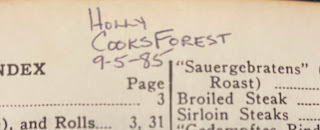 Holly
Cooks Forest
9-5-85
NDEX
Page
..... 3
), and Rolls.... 3, 31
"Sauergebratens" (
Roast) .........
Broiled Steak .....
Sirloin Steaks .....